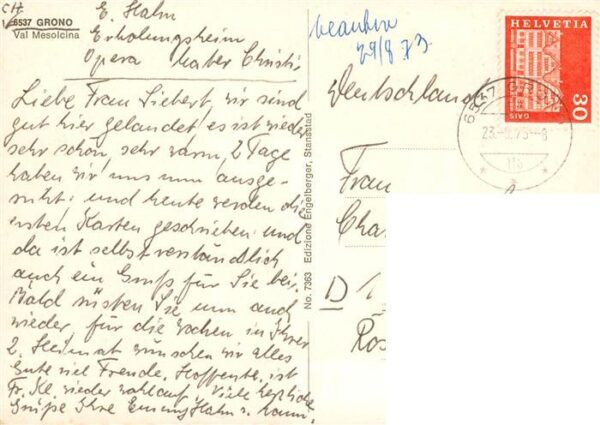 CH
6537 GRONO
Val Mesolcina
E. Hahn
Erholungsheim
Opera Mater Christi
Liebe Frau Siebert, wir sind
gut hier gelandet, es ist wieder
sehr schön, sehr warm, 2 Tage
haben wir uns nun ausge-
ruht, und heute werden die
ersten Karten geschrieben und
da ist selbstverständlich
auch ein Gruß für Sie bei.
Bald rüsten Sie nun auch
wieder, für die Wochen in Ihrer
2. Heimat wünschen wir alles
Gute viel Freude. Hoffentl. ist
Fr. Kl. wieder wohlauf. Viele herzliche
Grüße Ihre Hahn u.
No. 7363 Edizione Engelberger, Stansstad
29/8 73.
Deutschland
HELVETIA
GAIS
30
6537 GRONO
Frau
Cha
D 1
Ros